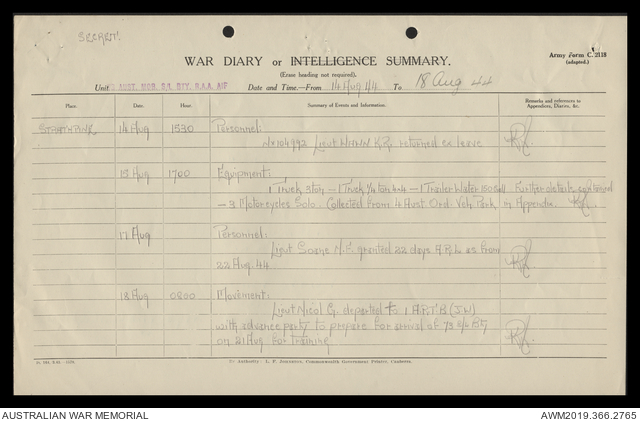 SECRET.
Army Form C. 2118
(adapted.)
WAR DIARY or INTELLIGENCE SUMMARY.
(Erase heading not required).
Unit AUST. MOB. S/L BTY. R.A.A. AIF Date and Time.—From 14 Aug 44 To 18 Aug 44
Place. Date. Hour. Summary of Events and Information. Remarks and references to Appendices, Diaries, &c.
STRATHPINE 14 Aug 1530 Personnel:
Lieut K.R. returned ex leave
15 Aug 1700 Equipment:
1 Truck 3 ton — 1 Truck 1/4 ton 4x4 — 1 Trailer Water 150 Gall. Further details contained
— 3 Motorcycles Solo. Collected from 4 Aust. Ord. Veh Park in Appendix
17 Aug Personnel:
Lieut granted 22 days A.R.L. as from
22 Aug. 44.
18 Aug 0800 Movement:
Lieut Nicol G. departed to 1 (J.W)
with advance party to prepare for arrival of 73 S/L Bty
on 21 Aug for training.
By Authority: L. F. Johnston, Commonwealth Government Printer, Canberra.
AUSTRALIAN WAR MEMORIAL AWM2019.366.2765